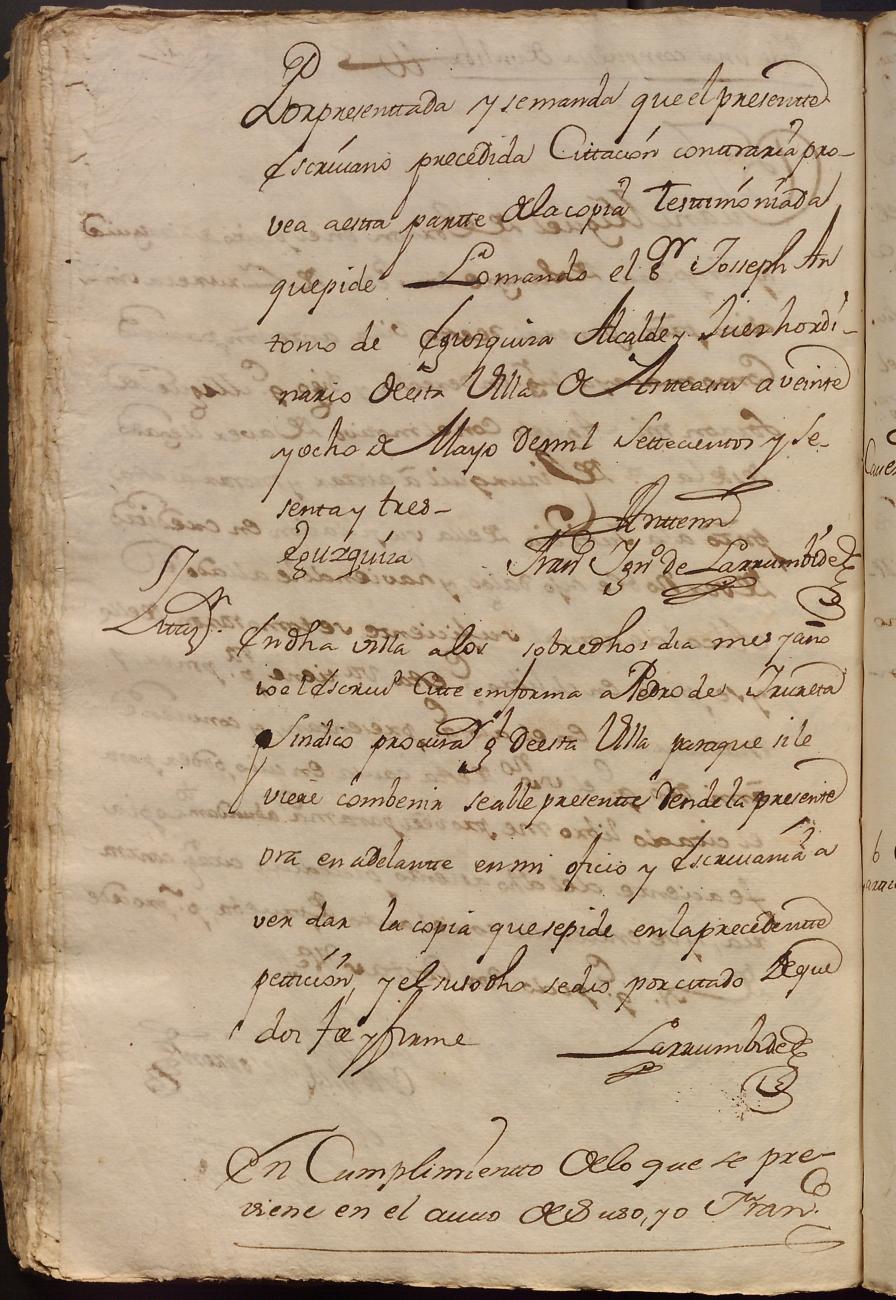 Por presenttada y semanda que el presentte
Escrivano precedida Cittación conttraria pro-
vea a estta partte de la copia Testtimoniada
que pide Lo mando el Sr Josseph An
tonio de Egurquiza Alcalde y Juez hordi-
nario de esta Villa de a veinte
y ocho de Mayo de mil Settecientos y se-
senta y tres-
Antte mi
Egurquiza Franco Igno de Larrumbide
Cittazn. En dha villa a los sobredhos dia mes y año
io el Escrivo Cite en forma a Pedro de Irureta
Sindico procurar gl de esta Villa para que si le
viere combenir se alle presentte desde la presente
ora en adelantte en mi oficio y Escrivania a
ver dar la copia que se pide en la precedentte
petticion, y el susodho se dio por citado de que
doi fee y firme Larrumbide
En Cumplimientto de lo que se pre-
viene en el autto de suso, yo Franco